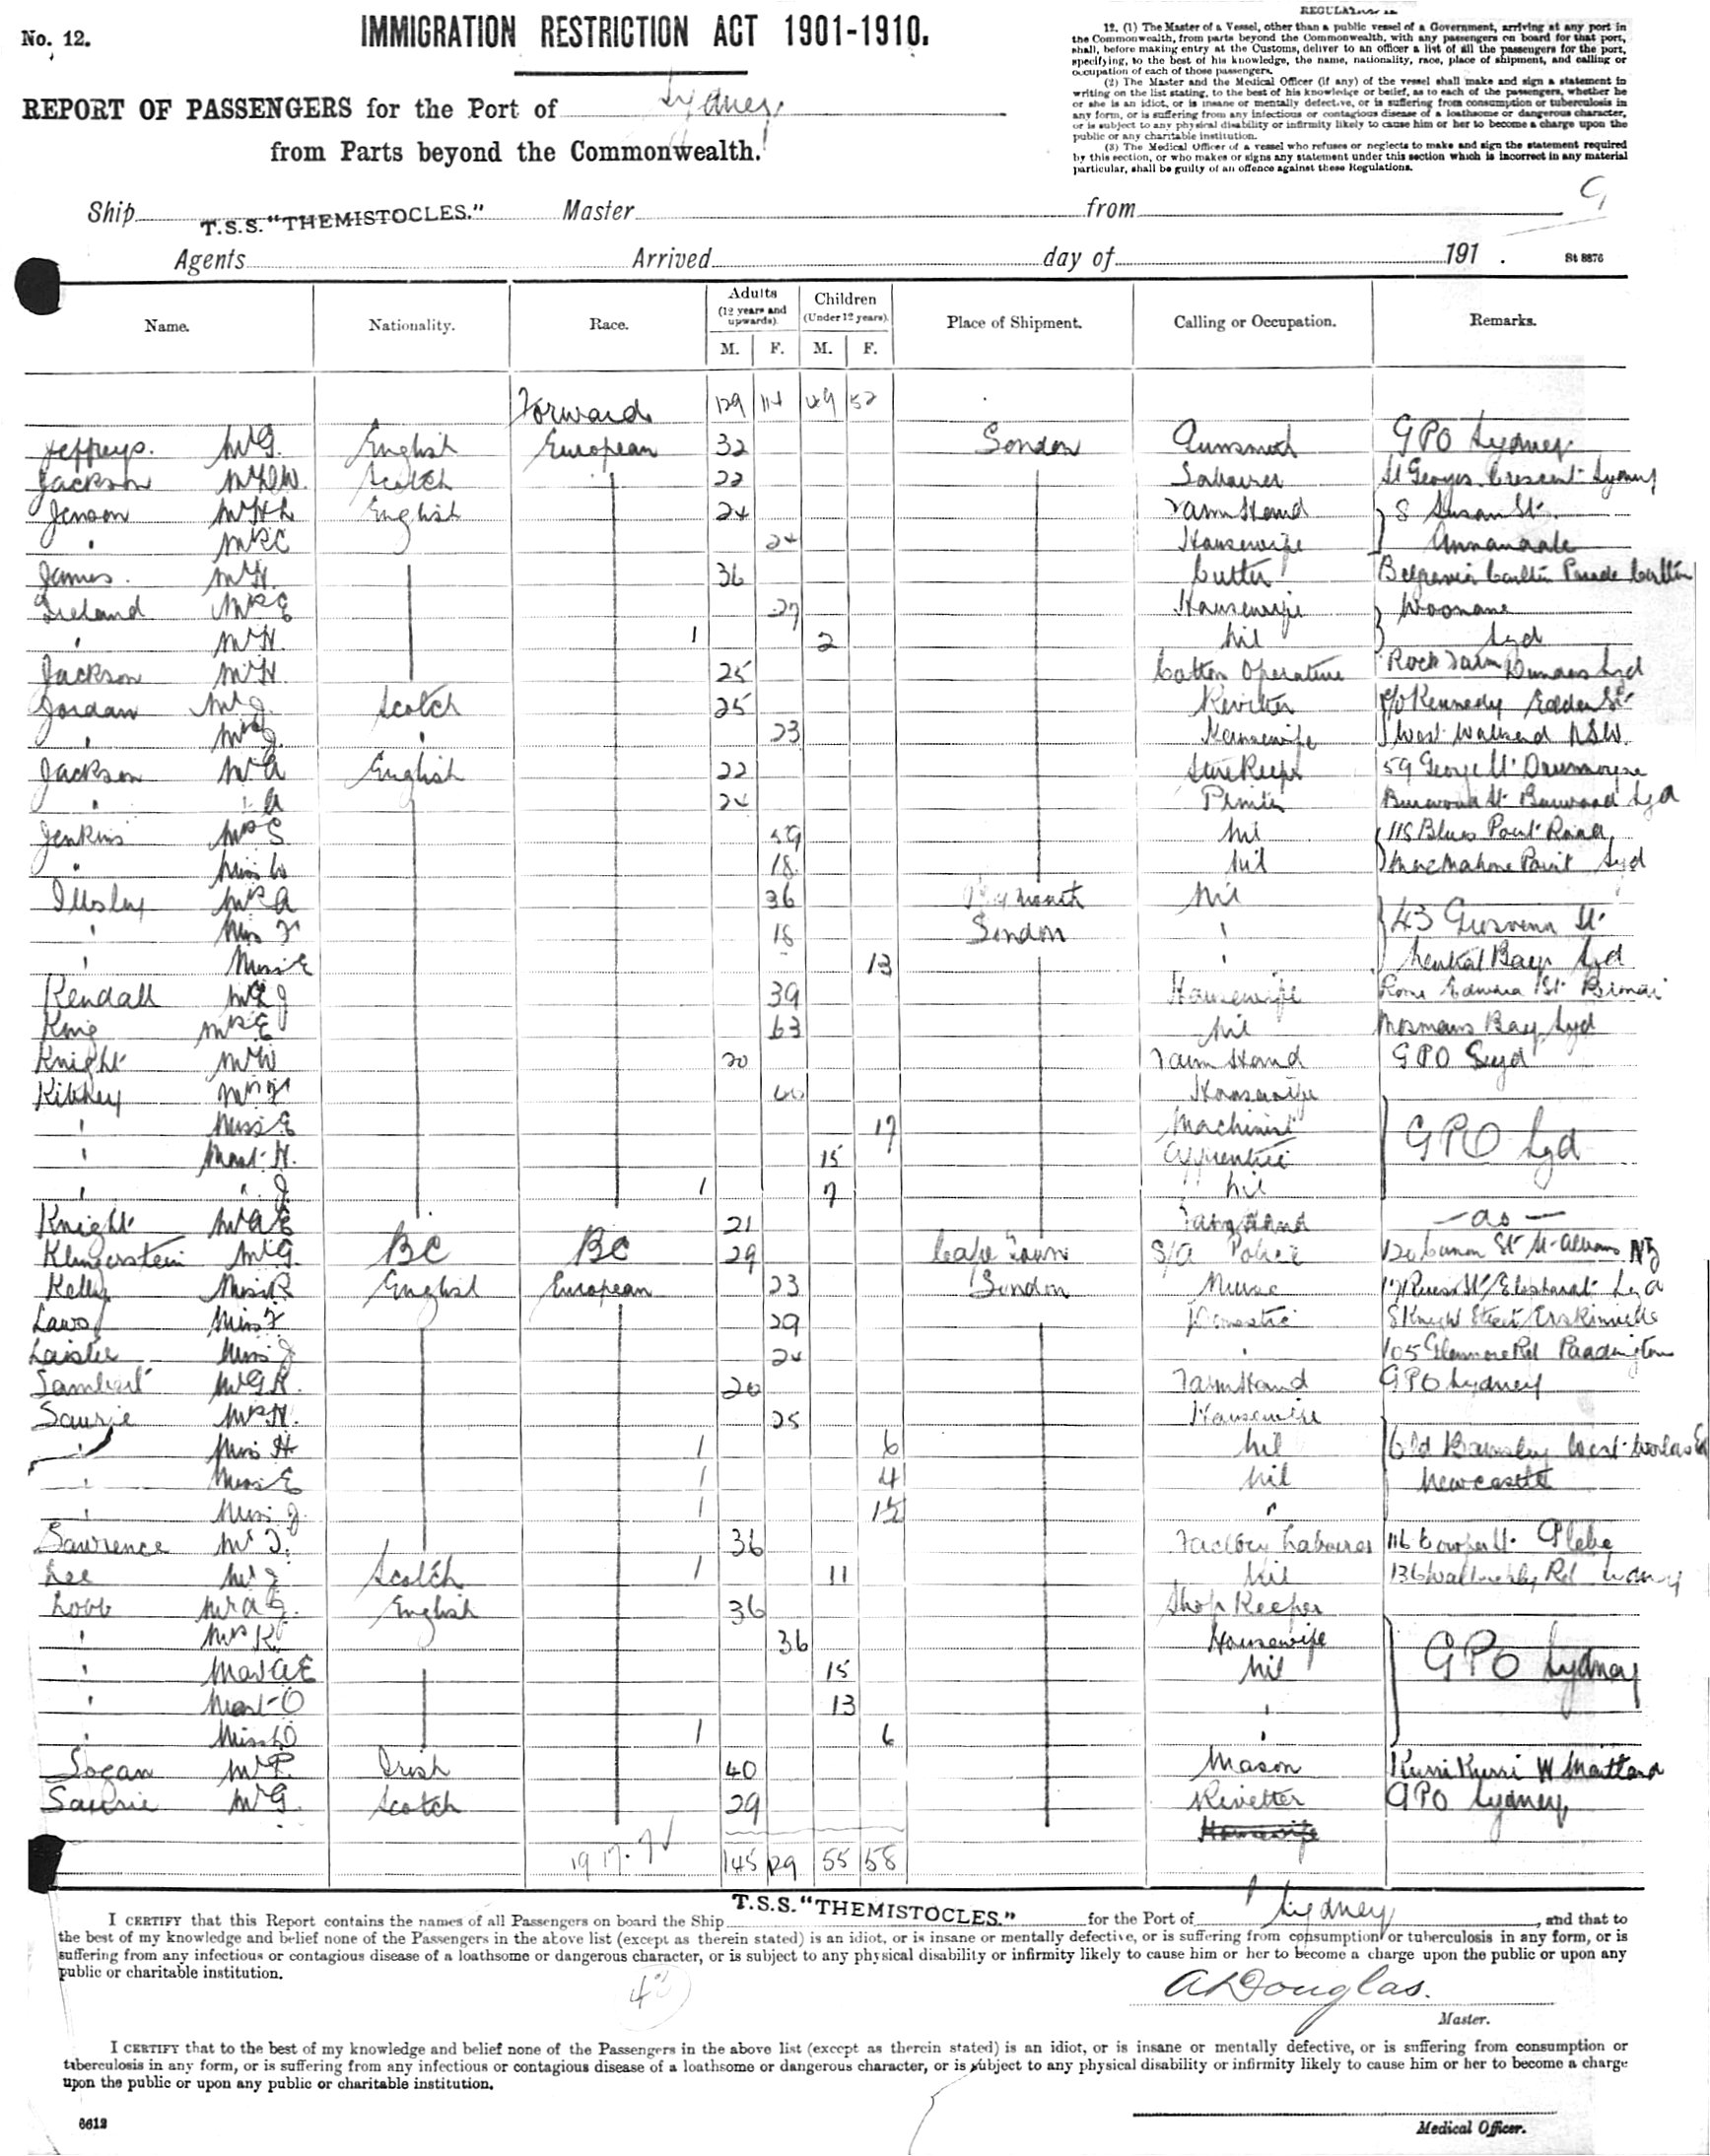 No. 12.
IMMIGRATION RESTRICTION ACT 1901-1910.
REPORT OF PASSENGERS for the Port of Sydney
from Parts beyond the Commonwealth.
12. (1) The Master of a Vessel, other than a public vessel of a Government, arriving at any port in
the Commonwealth, from parts beyond the Commonwealth, with any passengers on board for that port,
shall, before making entry at the Customs, deliver to an officer a list of all the passengers for the port,
specifying, to the best of his knowledge, the name, nationality, race, place of shipment, and calling or
occupation of each of those passengers.
(2) The Master and the Medical Officer (if any) of the vessel shall make and sign a statement in
writing on the list stating, to the best of his knowledge or belief, as to each of the passengers, whether he
or she is an idiot, or is insane or mentally defective, or is suffering from consumption or tuberculosis in
any form, or is suffering from any infectious or contagious disease of a loathsome or dangerous character,
or is subject to any physical disability or infirmity likely to cause him or her to become a charge upon the
public or any charitable institution.
(3) The Medical Officer of a vessel who refuses or neglects to make and sign the statement required
by this section, or who makes or signs any statement under this section which is incorrect in any material
particular, shall be guilty of an offence against these Regulations.
Ship T.S.S. "THEMISTOCLES." Master from 9
Agents Arrived day of 191 . St 8876
Name. Nationality. Race. Adults (12 years and upwards). Children (Under 12 years). Place of Shipment. Calling or Occupation. Remarks.
M. F. M. F.
Forward 129 114 49 52
Jeffreys. Mr G. English European 32 London Gunsmith GPO Sydney
Jackson Scotch 22 Labourer St Georges Crescent Sydney
Jenson Mr H L English 24 Farm Hand 8 Susan St.
" Mrs C 24 Housewife Annandale
James. Mr H. 36 Cutter Carlton Parade Carlton
Ireland Mrs E 27 Housewife
" Mr H. 1 2 Nil Syd
Jackson Mr H. 25 Cotton Operative Rock Farm Dundas Syd
Jordan Mr J. Scotch 25 Rivetter c/o Kennedy
" Mrs J. " 23 Housewife West Wallsend NSW.
Jackson Mr A English 22 Store Keeper 59 George St Drummoyne
" " A 24 Burwood St Burwood Syd
Jenkins Mrs S 59 Nil 115 Blues Point Road
" Miss W 18 Nil MacMahons Point Syd
Illsley Mrs A 36 Plymouth Nil
" Miss F 18 London " 43 Grosvenor St
" Miss E 13 " Neutral Bay Syd
Kendall Mrs J 39 Housewife Edward St
King Mrs E 63 Nil Mosmans Bay Syd
Knight Mr W 20 Farm Hand GPO Syd
Mrs 40 Housewife
" Miss E 17 Machinist GPO Syd
" Mast. H. 15 Apprentice
" " J. 1 7 Nil
Knight Mr A E 21 Farm Hand - do -
Klingerstein Mr G. BC BC 29 Cape Town S/A Police St NZ
Kelly Miss R English European 23 London Nurse Syd
Laws Miss F 29 Domestic 8 Knight Street Erskineville
Miss J 24 " 105 Glenmore Rd Paddington
Lambert Mr G R. 20 Farm Hand GPO Sydney
Laurie Mrs H. 25 Housewife
" Miss H 1 6 Nil
" Miss E 1 4 Nil Newcastle
" Miss J. 1 1½ "
Lawrence Mr T. 36 Factory Labourer 116 Cowper St. Glebe
Lee Mr J Scotch 1 11 Nil 136 Willoughby Rd Sydney
Lobb Mr A G. English 36 Shop Keeper
" Mrs K 36 Housewife GPO Sydney
" Mast A E 15 Nil
" Mast O 13 "
" Miss D 1 6 "
Logan Mr P. Irish 40 Mason Kurri Kurri W Maitland
Laurie Mr G. Scotch 29 Rivetter GPO Sydney
Housewife
145 129 55 58
I CERTIFY that this Report contains the names of all Passengers on board the Ship T.S.S. "THEMISTOCLES." for the Port of Sydney, and that to
the best of my knowledge and belief none of the Passengers in the above list (except as therein stated) is an idiot, or is insane or mentally defective, or is suffering from consumption or tuberculosis in any form, or is
suffering from any infectious or contagious disease of a loathsome or dangerous character, or is subject to any physical disability or infirmity likely to cause him or her to become a charge upon the public or upon any
public or charitable institution.
A Douglas.
Master.
I CERTIFY that to the best of my knowledge and belief none of the Passengers in the above list (except as therein stated) is an idiot, or is insane or mentally defective, or is suffering from consumption or
tuberculosis in any form, or is suffering from any infectious or contagious disease of a loathsome or dangerous character, or is subject to any physical disability or infirmity likely to cause him or her to become a charge
upon the public or upon any public or charitable institution.
6612
Medical Officer.